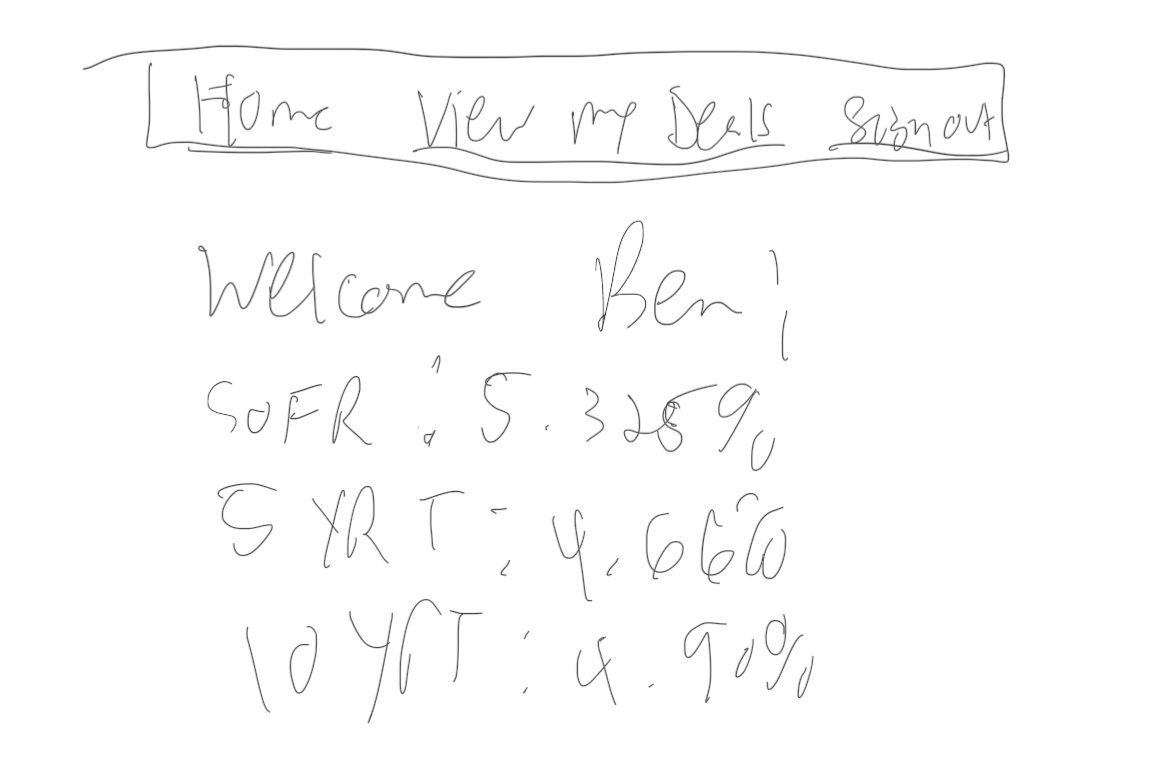 Home View my Deals Sign out
Welcome Ben!
SOFR: 5.325%
5 YRT: 4.66%
10 YRT: 4.90%